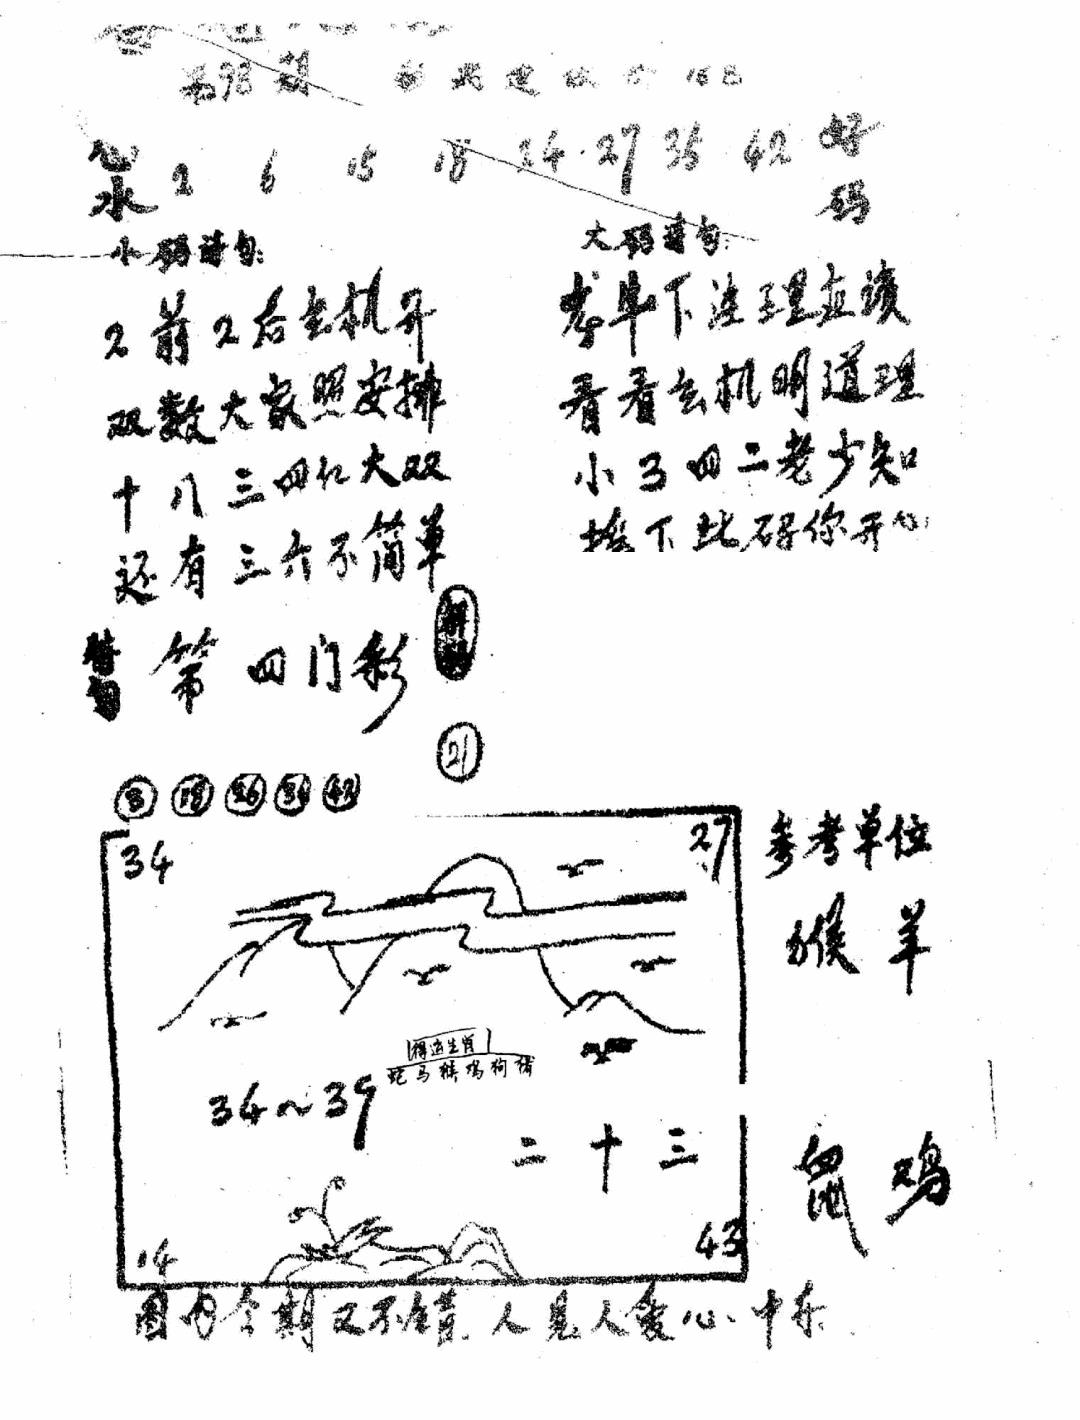 第98期
心水 2 6 15 18 24·27 35 42 好码
小码诗句:
2前2后玄机开
双数大家照安排
十八三四红大双
还有三六不简单
第四门彩
21
大码诗句:
下注理应
看看玄机明道理
小3四二老少知
下此码你开心
8 18 26 36 42
34 27
参考单位
猴 羊
生肖
蛇马猴鸡狗猪
34~39
二十三
鼠 鸡
14 43
图内今期又不错 人见人爱心中乐